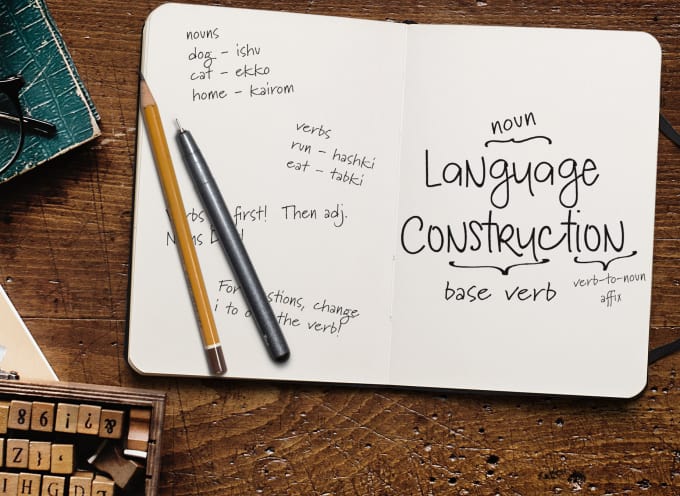 nouns
dog – ishu
cat – ekko
home – kairom
verbs
run – hashki
eat – tabki
Verbs first! Then adj.
For change
i to the verb!
noun
LANguage
CONStRuctiON
base verb
verb-to-noun
affix